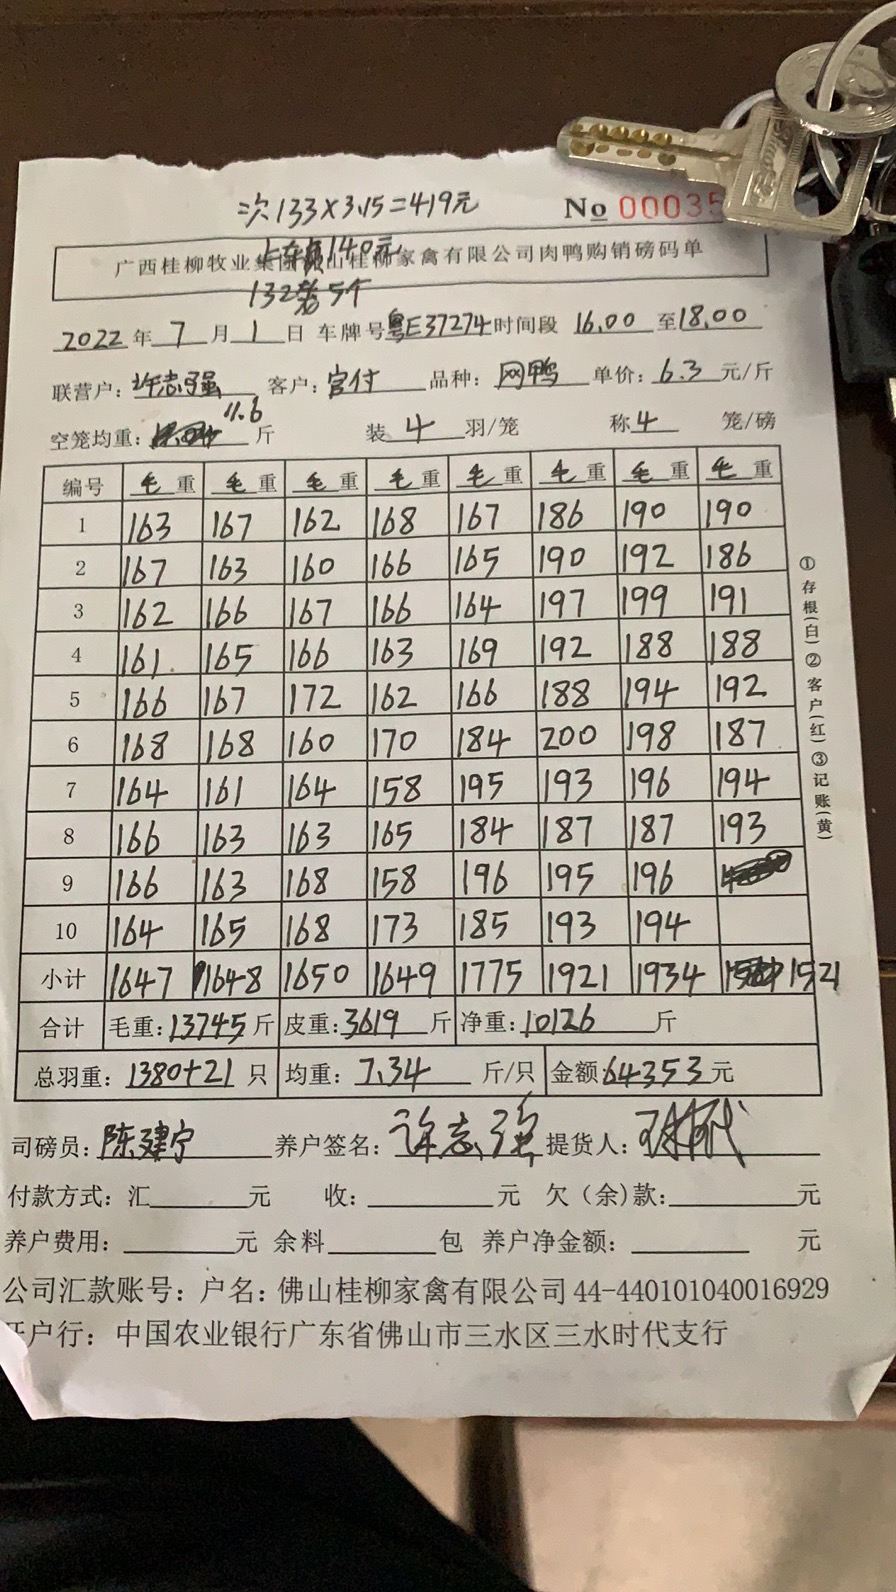 次133×3.15=419元
No 00035
上车费140元
广西桂柳牧业集团佛山桂柳家禽有限公司肉鸭购销磅码单
132 5个
2022年7月1日 车牌号粤E37274时间段 16.00至18.00
联营户:许志强 客户:官付 品种:网鸭 单价:6.3元/斤
空笼均重: 11.6 斤 装4羽/笼 称4笼/磅
编号 毛重 毛重 毛重 毛重 毛重 毛重 毛重 毛重
1 163 167 162 168 167 186 190 190
2 167 163 160 166 165 190 192 186
3 162 166 167 166 164 197 199 191
4 161 165 166 163 169 192 188 188
5 166 167 172 162 166 188 194 192
6 168 168 160 170 184 200 198 187
7 164 161 164 158 195 193 196 194
8 166 163 163 165 184 187 187 193
9 166 163 168 158 196 195 196
10 164 165 168 173 185 193 194
小计 1647 1648 1650 1649 1775 1921 1934 1521
合计 毛重:13745斤 皮重:3619斤 净重:10126斤
总羽重:1380+21只 均重:7.34斤/只 金额:64353元
司磅员:陈建宁 养户签名:许志强 提货人:
付款方式:汇 元 收: 元 欠(余)款: 元
养户费用: 元 余料 包 养户净金额: 元
公司汇款账号:户名:佛山桂柳家禽有限公司 44-440101040016929
开户行:中国农业银行广东省佛山市三水区三水时代支行
①存根(白)②客户(红)③记账(黄)